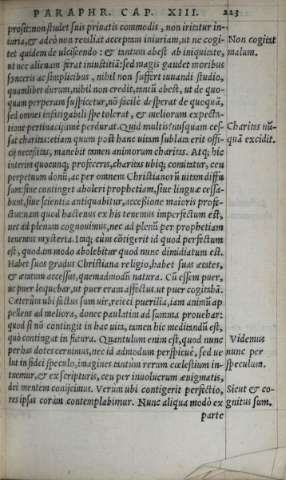 PARAPHR. CAP. XIII. 223
prosit: non studet suis priuatis commodis, non irritatur in-
iuria, & adeò non retaliat acceptam iniuriam, ut ne cogi-
tet quidem de ulciscendo: & tantum abest ab iniquitate,
ut nec alienam ferat iniustitiã: sed magis gaudet moribus
synceris ac simplicibus, nihil non suffert iuuandi studio,
quamlibet durum, nihil non credit, tantũ abest, ut de quo-
quam perperam suspicetur, nõ facilè desperat de quoquã,
sed omnes infatigabili spe tolerat, & meliorem expecta-
tione pertinaci, animè perdurat. Quid multis? nusquam ces-
sat charitas: etiam quum post hanc uitam sublata erit offi-
cij necessitas, manebit tamen animorum charitas. Atq; hic
interim quocunq; profeceris, charitas ubiq; comitatur, ceu
perpetuum donũ, ac per omnem Christianorũ uitam diffu-
sum: siue contingit aboleri prophetiam, siue linguæ cessa-
bunt, siue scientia antiquabitur, accessione maioris profe-
ctus: nam quod hactenus ex his tenemus imperfectum est,
nec ad plenum cognouimus, nec ad plenũ per prophetiam
tenemus mysteria. Itaq; cùm cõtigerit id quod perfectum
est, quodammodo abolebitur quod nunc dimidiatum est.
Habet suos gradus Christiana religio, habet suas ætates,
& ætatum accessus, quemadmodũ natura. Cũ essem puer,
ut puer loquebar, ut puer eram affectus, ut puer cogitabã.
Cæterùm ubi factus sum uir, reieci puerilia, iam animũ ap
pellens ad meliora, donec paulatim ad summa prouehar:
quod si nõ contingit in hac uita, tamen hic meditandũ est,
quò contingat in futura. Quantulum enim est, quod nunc
per has dotes cernimus, nec id admodum perspicuè, sed ue
lut in fidei speculo, imagines tantùm rerum cælestium in-
tuemur, & ex scripturis, ceu per inuolucrum ænigmatis,
dei mentem conijcimus. Verùm ubi contigerit perfectio,
res ipsas coram contemplabimur. Nunc aliqua modò ex
parte
Non cogitat
malum.
Charitas nũ-
quã excidit.
Videmus
nunc per
speculum.
Sicut & co-
gnitus sum.